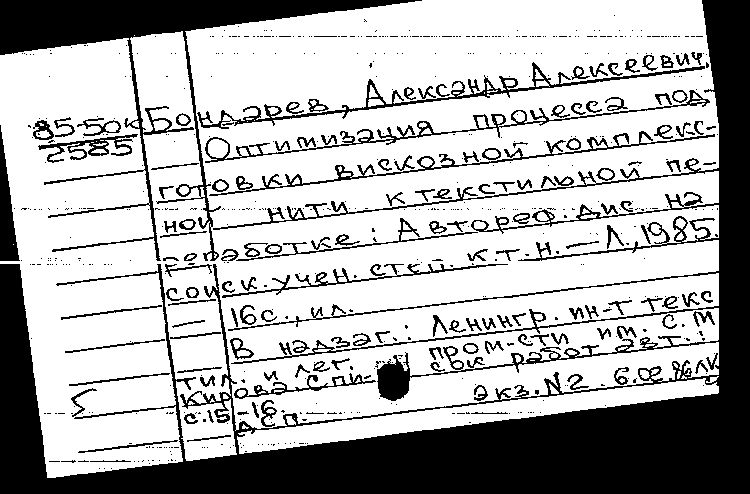 85-50к Бондарев, Александр Алексеевич.
2585 Оптимизация процесса под-
готовки вискозной комплекс-
ной нити к текстильной пе-
реработке: Автореф. дис. на
соиск. учен. степ. к.т.н. — Л., 1985.
— 16 с., ил.
В надзаг.: Ленингр. ин-т текс
тил. и лег. пром-сти им. С. М
Кирова. Спи- сок работ авт.:
с. 15-16. Экз. N2 6.02.86
ДСП.